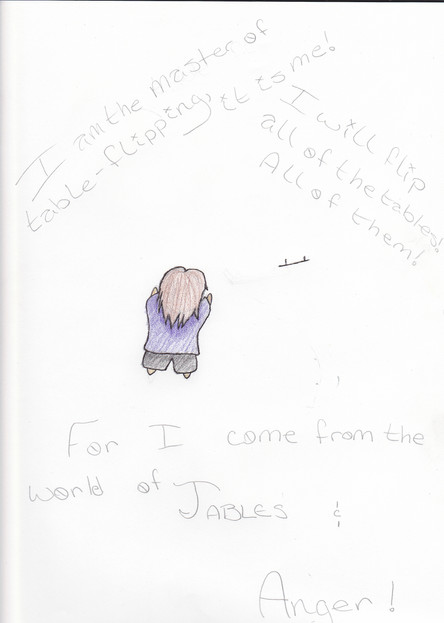 I am the master of
table-flipping, it is me!
I will flip
all of the tables!
All of them!
For I come from the
world of TABLES &
Anger!